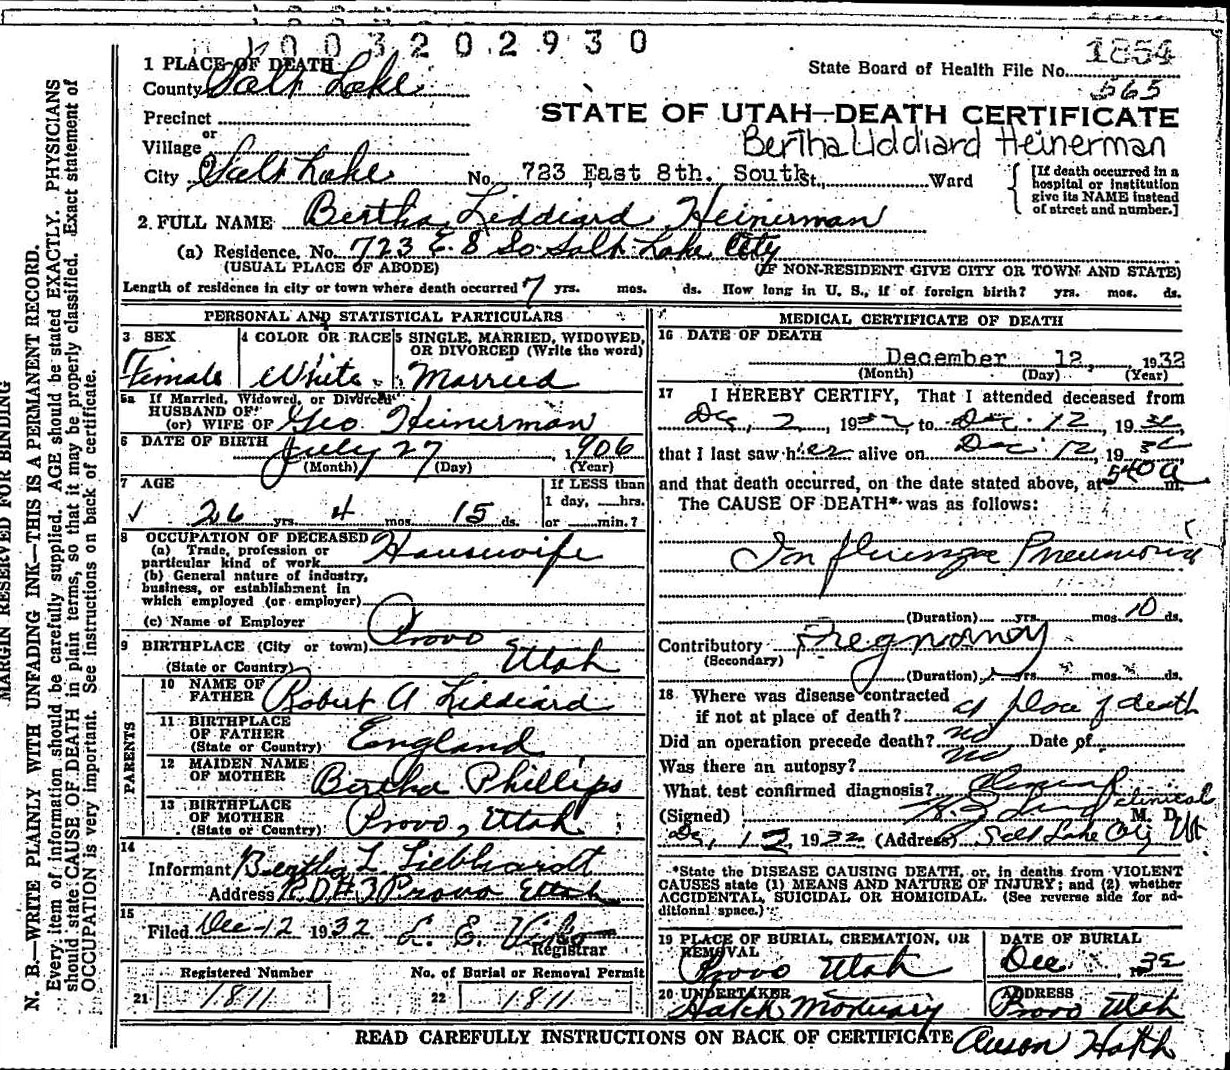 003202930
1854
State Board of Health File No.
565
1 PLACE OF DEATH
County Salt Lake
STATE OF UTAH—DEATH CERTIFICATE
Precinct
or
Village
Bertha Liddiard Heinerman
or
City Salt Lake No. 723 East 8th. South St., Ward
[If death occurred in a
hospital or institution
give its NAME instead
of street and number.]
2. FULL NAME Bertha Liddiard Heinerman
(a) Residence. No. 723 E. 8 So Salt Lake City
(USUAL PLACE OF ABODE) (IF NON-RESIDENT GIVE CITY OR TOWN AND STATE)
Length of residence in city or town where death occurred 7 yrs. mos. ds. How long in U. S., if of foreign birth? yrs. mos. ds.
PERSONAL AND STATISTICAL PARTICULARS
3 SEX
Female
4 COLOR OR RACE
White
5 SINGLE, MARRIED, WIDOWED,
OR DIVORCED (Write the word)
Married
5a If Married, Widowed, or Divorced
HUSBAND OF
(or) WIFE OF Geo Heinerman
6 DATE OF BIRTH July 27 1906
(Month) (Day) (Year)
7 AGE
26 yrs. 4 mos. 15 ds.
If LESS than
1 day, hrs.
or min.?
8 OCCUPATION OF DECEASED
(a) Trade, profession or
particular kind of work Housewife
(b) General nature of industry,
business, or establishment in
which employed (or employer)
(c) Name of Employer
9 BIRTHPLACE (City or town) Provo
(State or Country) Utah
PARENTS
10 NAME OF
FATHER Robert A Liddiard
11 BIRTHPLACE
OF FATHER
(State or Country) England
12 MAIDEN NAME
OF MOTHER Bertha Phillips
13 BIRTHPLACE
OF MOTHER
(State or Country) Provo, Utah
14
Informant Bertha L. Liebhardt
Address R.D. #3 Provo Utah
15
Filed Dec 12 1932 L. E.
Registrar
Registered Number
21 1811
No. of Burial or Removal Permit
22 1811
MEDICAL CERTIFICATE OF DEATH
16 DATE OF DEATH
December 12, 1932
(Month) (Day) (Year)
17 I HEREBY CERTIFY, That I attended deceased from
Dec, 2, 1932, to Dec. 12, 1932,
that I last saw her alive on Dec 12, 1932
and that death occurred, on the date stated above, at 540 a m.
The CAUSE OF DEATH* was as follows:
Influenza Pneumonia
(Duration) yrs. mos. 10 ds.
Contributory Pregnancy
(Secondary)
(Duration) yrs. mos. ds.
18 Where was disease contracted
if not at place of death? at place of death
Did an operation precede death? no Date of
Was there an autopsy? no
What test confirmed diagnosis? clinical
(Signed) M. D.
Dec, 12, 1932 (Address) Salt Lake City Ut
*State the DISEASE CAUSING DEATH, or, in deaths from VIOLENT
CAUSES state (1) MEANS AND NATURE OF INJURY; and (2) whether
ACCIDENTAL, SUICIDAL OR HOMICIDAL. (See reverse side for ad-
ditional space.)
19 PLACE OF BURIAL, CREMATION, OR
REMOVAL
Provo Utah
DATE OF BURIAL
Dec 1932
20 UNDERTAKER
Hatch Mortuary
ADDRESS
Provo Utah
READ CAREFULLY INSTRUCTIONS ON BACK OF CERTIFICATE Anson Hatch
MARGIN RESERVED FOR BINDING
N. B.—WRITE PLAINLY WITH UNFADING INK—THIS IS A PERMANENT RECORD.
Every item of information should be carefully supplied. AGE should be stated EXACTLY. PHYSICIANS
should state CAUSE OF DEATH in plain terms, so that it may be properly classified. Exact statement of
OCCUPATION is very important. See instructions on back of certificate.